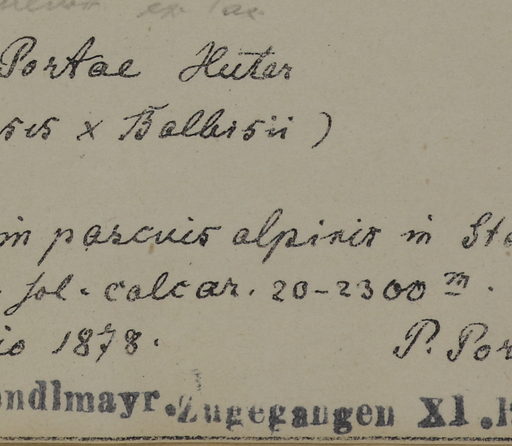 Portae Huter
sis x Balbisii )
in pascuis alpinis in St
sol. calcar. 20-2300 m.
io 1878. P. Por
ondlmayr. Zugegangen XI.